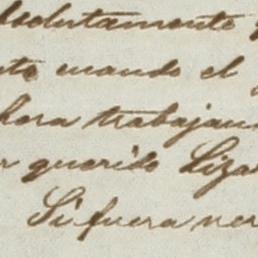 absolutamente
cuando el
hora trabajan
querido Liza
Si fuera ner